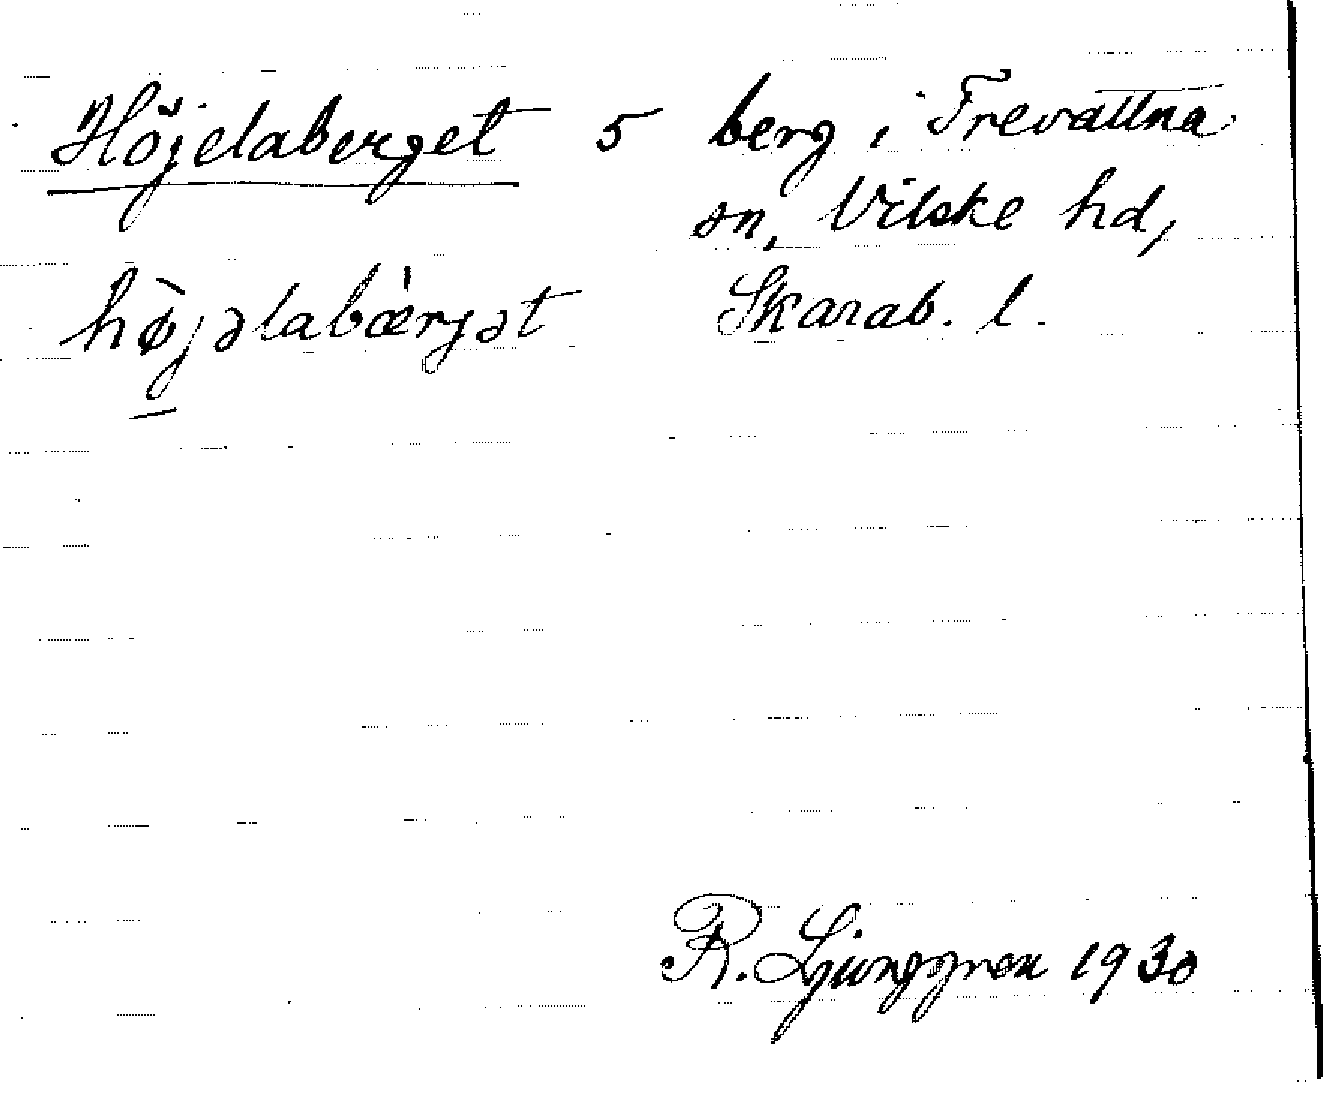 Höjelaberget 5 berg i Trevattna
sn, Vilske hd,
hø̀jəlabæ̀rjət Skarab. l.
R. Ljunggren 1930